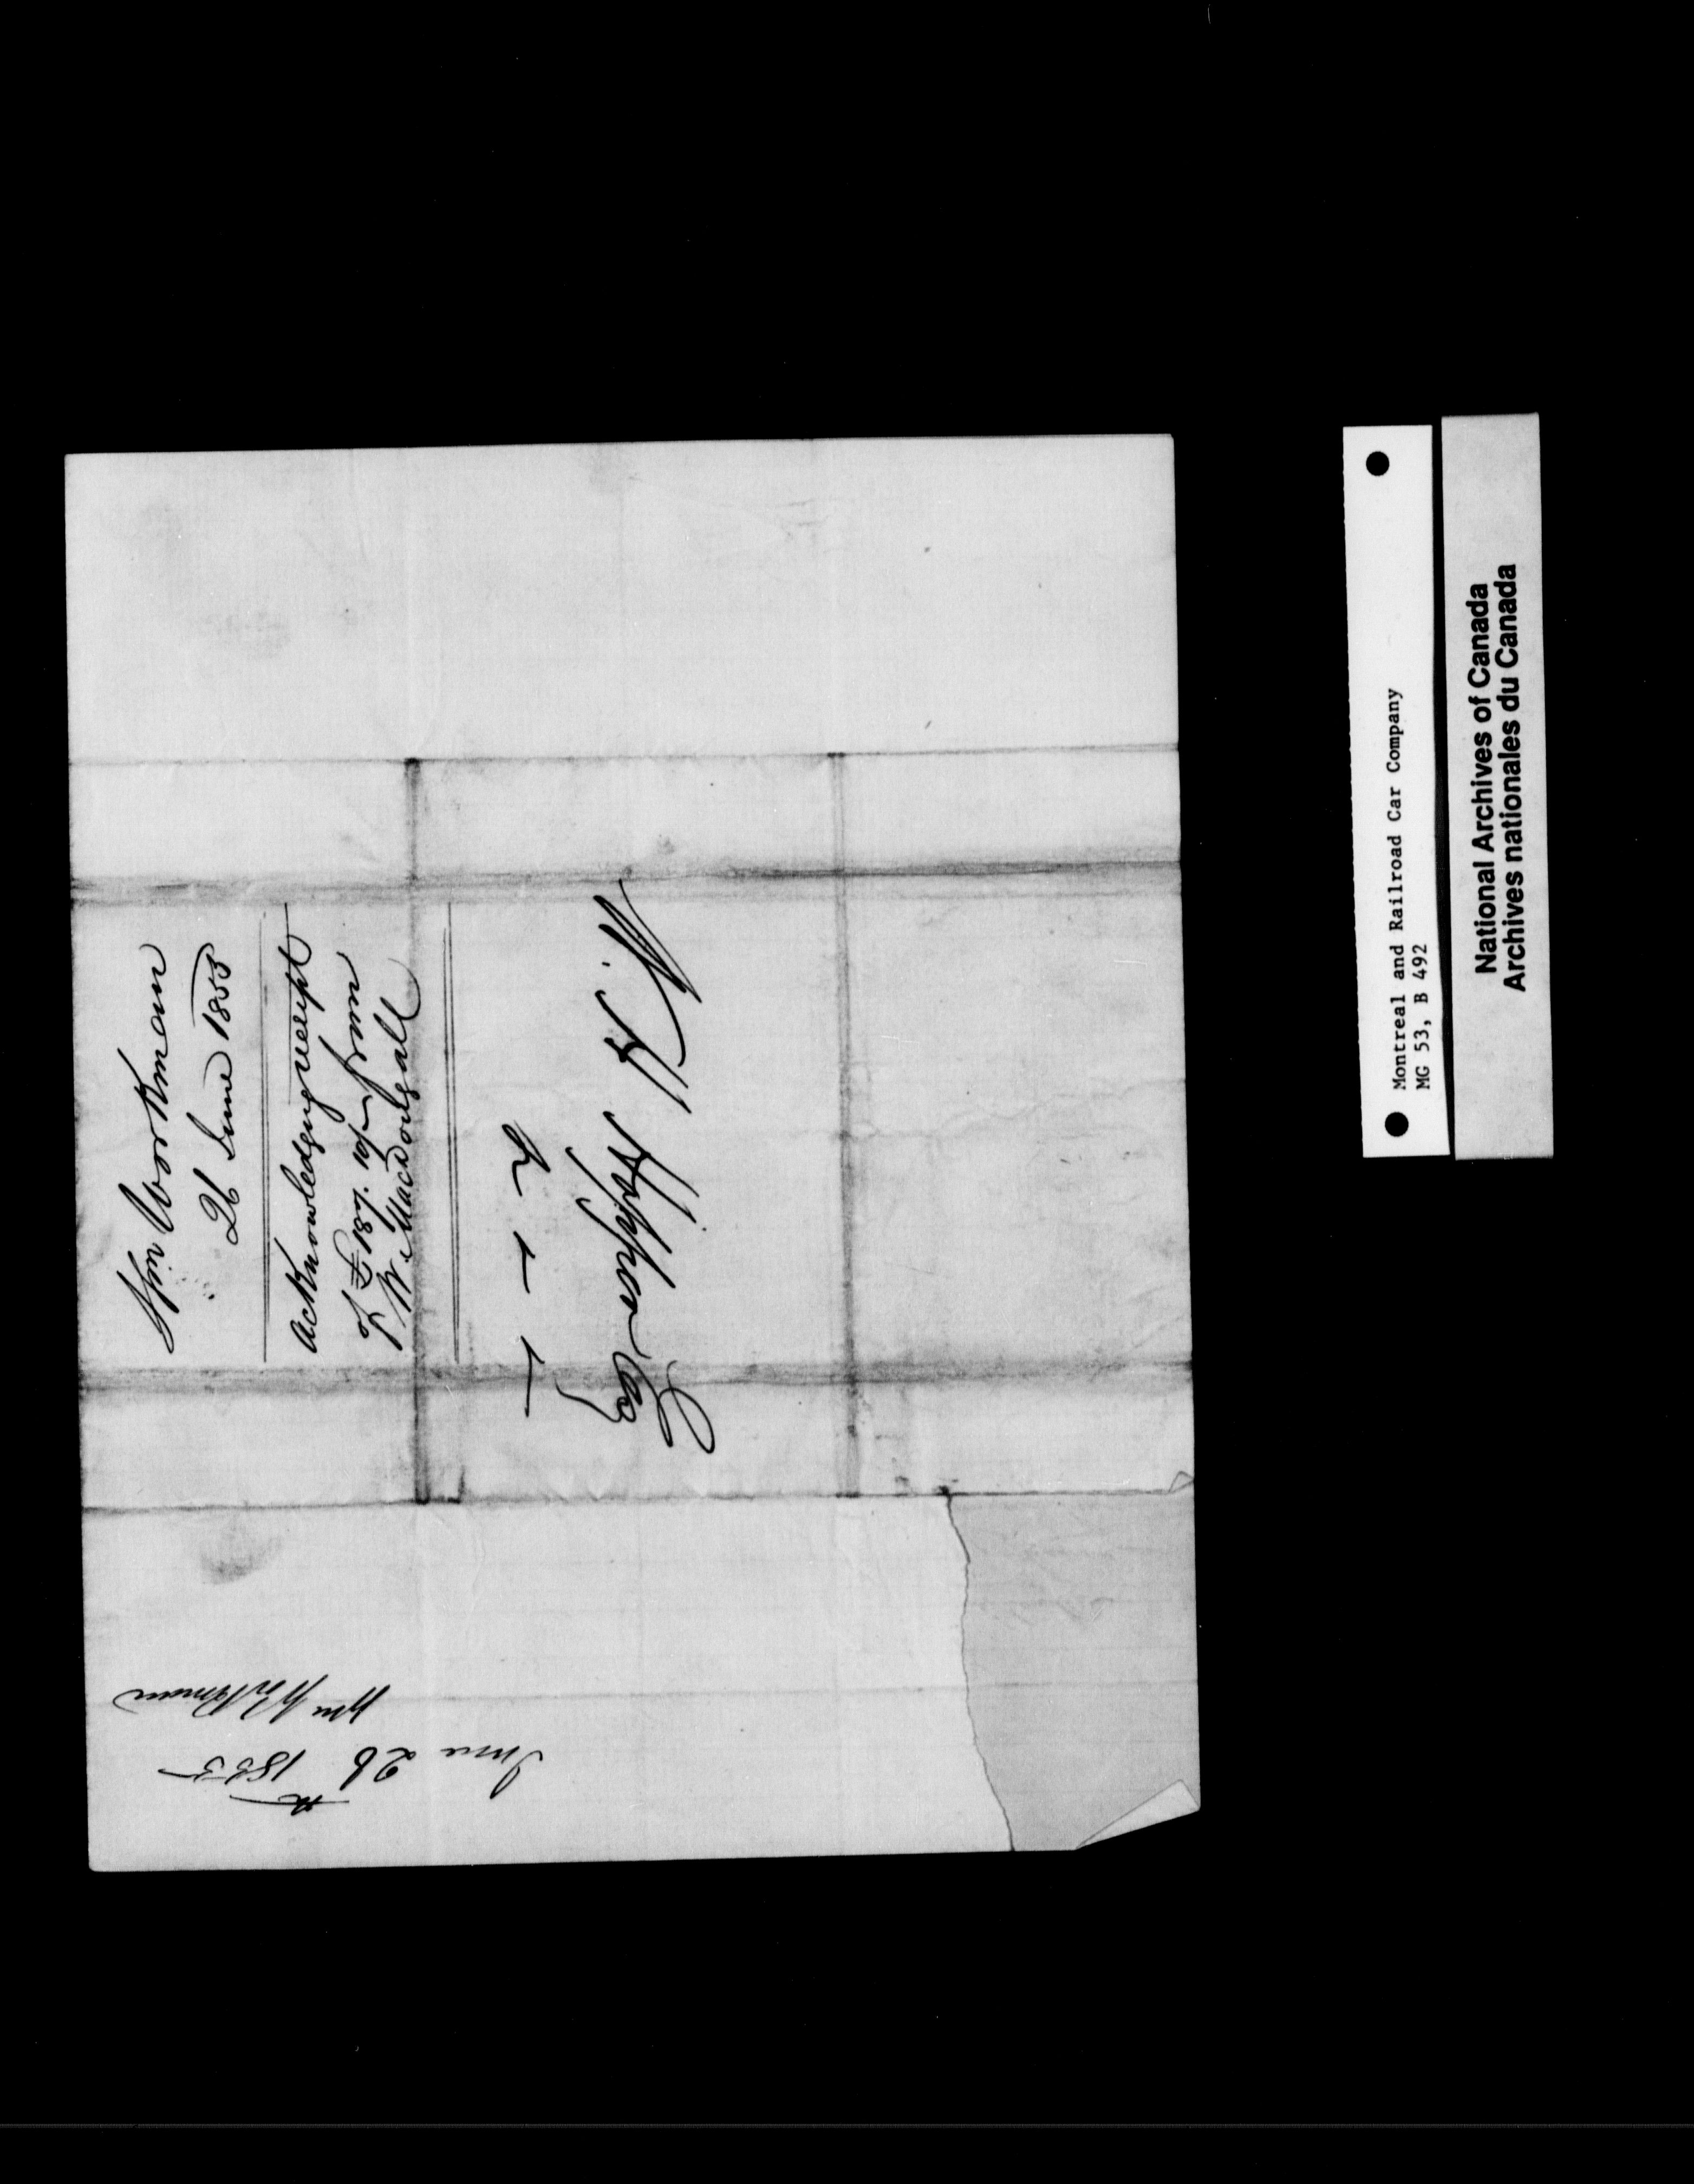 Wm Workman
26 June 1855
Acknowledging receipt
of £187. 10/- from
W. MacDougall
W. H. Hopper Esq
June 26th 1855
Wm Workman
Montreal and Railroad Car Company
MG 53, B 492
National Archives of Canada
Archives nationales du Canada